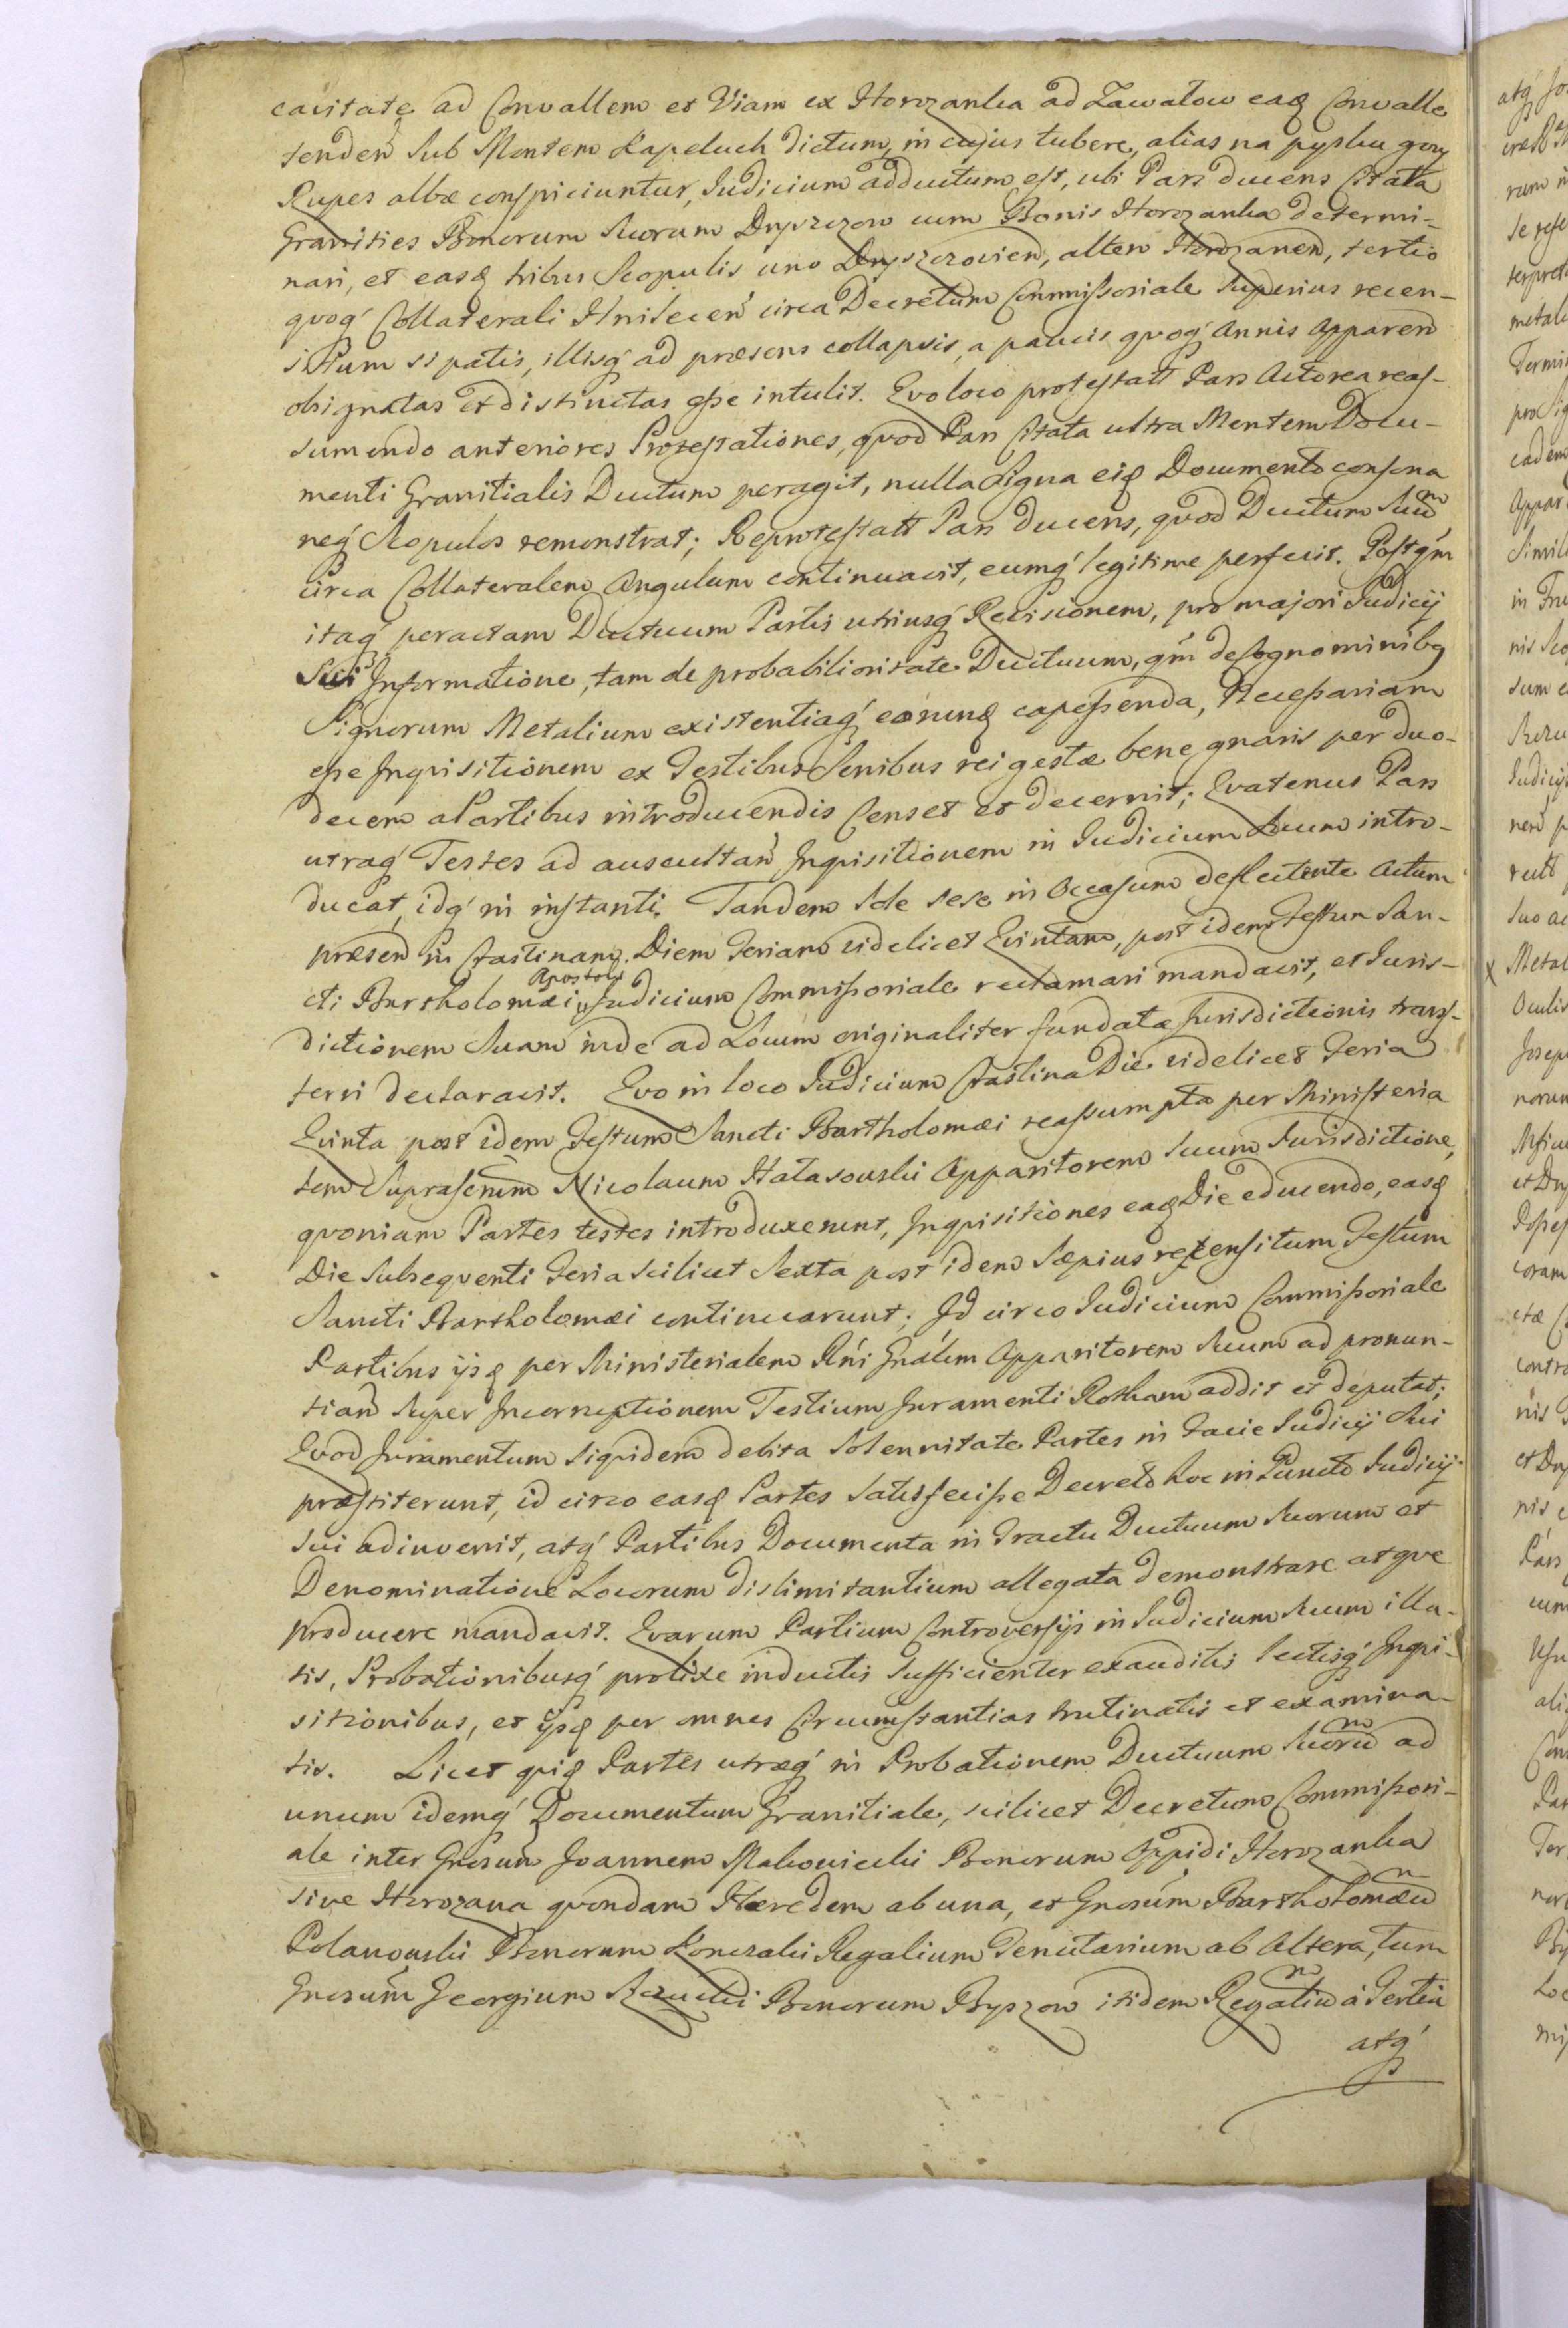 cavitate ad Convallem et Viam ex Horozanka ad Zawalow eaq Convalle
tenden̄ sub Montem Kapeluch dictum, in cujus tubere, alias na pysku gory
Rupes albæ conspiciuntur, Judicium adductum est, ubi Pars ducens Citata
Granities Bonorum suorum Dryszczow cum Bonis Horozanka determi-
nari, et easq tribus Scopulis uno Dryszczovien̄, altero Horozanen̄, tertio
qvoq́ Collaterali Hnilecen̄ circa Decretum Commissoriale superius recen-
situm sipatis, illisq́ ad præsens collapsis, a paucis qvoq́ Annis Apparen̄
obsignatas et distinctas esse intulit. Qvo loco protestatt Pars Actorea reas-
sumendo anteriores Protestationes, qvod Pars Citata ultra Mentem Docu-
menti Granitialis Ductum peragit, nulla signa eiq Documento consona
neq́ Scopulos remonstrat; Reprotestatt Pars ducens, qvod Ductum suū
circa Collateralem Angulum continuavit, eumq́ legitime perfecit. Postqm̄
itaq́ peractam Ductuum Partis utriusq́ Revisionem, pro majori Judicij
Sui Informatione, tam de probabilioritate Ductuum, qm̄ de cognominibq
Signorum Metalium existentiaq́ eorunq capessenda, Necessariam
esse Inqvisitionem ex Testibus Senibus rei gestæ bene gnaris per duo-
decem a Partibus introducendis Censet et decernit; Qvatenus Pars
utraq́ Testes ad auscultan̄ Inqvisitionem in Judicium suum intro-
ducat, idq́ in instanti. Tandem Sole sese in Occasum deflectente Actum
præsen̄ in Crastinam Diem Feriam videlicet Qvintam, post idem Festum San-
cti Bartholomæi Apostoli Judicium Commissoriale reclamari mandavit, et Juris-
dictionem suam inde ad Locum originaliter fundatæ Jurisdictionis trans-
ferri declaravit. Qvo in loco Judicium Crastina Die videlicet Feria
Qvinta post idem Festum Sancti Bartholomæi reassumpta per Ministeria
lem suprascrum̄ Nicolaum Hatasowski Apparitorem suum Jurisdictione,
qvoniam Partes testes introduxerunt, Inqvisitiones eaq Die educendo, easq
Die subseqventi Feria scilicet Sexta post idem sæpius recensitum Festum
Sancti Bartholomæi continuarunt; Id circo Judicium Commissoriale
Partibus ijsq per Ministerialem Rńi Gnálem Apparitorem suum ad pronun-
tian̄ super Incorruptionem Testium Juramenti Rotham addit et deputat;
Qvod Juramentum siqvidem debita solennitate Partes in Facie Judicij sui
præstiterunt, id circo easq Partes satisfecisse Decreto hoc in Puncto Judicij
sui adinvenit, atq́ Partibus Documenta in Tractu Ductuum suorum et
Denominatione Locorum dislimitantium allegata demonstrare atqve
producere mandavit. Qvarum Partium Controversijs in Judicium suum illa-
tis, Probationibusq́ prolixe inductis sufficienter exauditis lectisq́ Inqvi-
sitionibus, et ijsq per omnes Circumstantias trutinatis et examina-
tis. Licet qviq Partes utræq́ in Probationem Ductuum suorū ad
unum idemq́ Documentum Granitiale, scilicet Decretum Commissori-
ale inter Gnosum̄ Joannem Makowiecki Bonorum Oppidi Horozanka
sive Horozana qvondam Hæredem ab una, et Gnosúm Bartholomæū
Polanowski Bonorum Konczaki Regalium Tenutarium ab Altera, tum
Gnosum̄ Georgium Rzucki Bonorum Byszow itidem Regaliū á Tertia
atq́